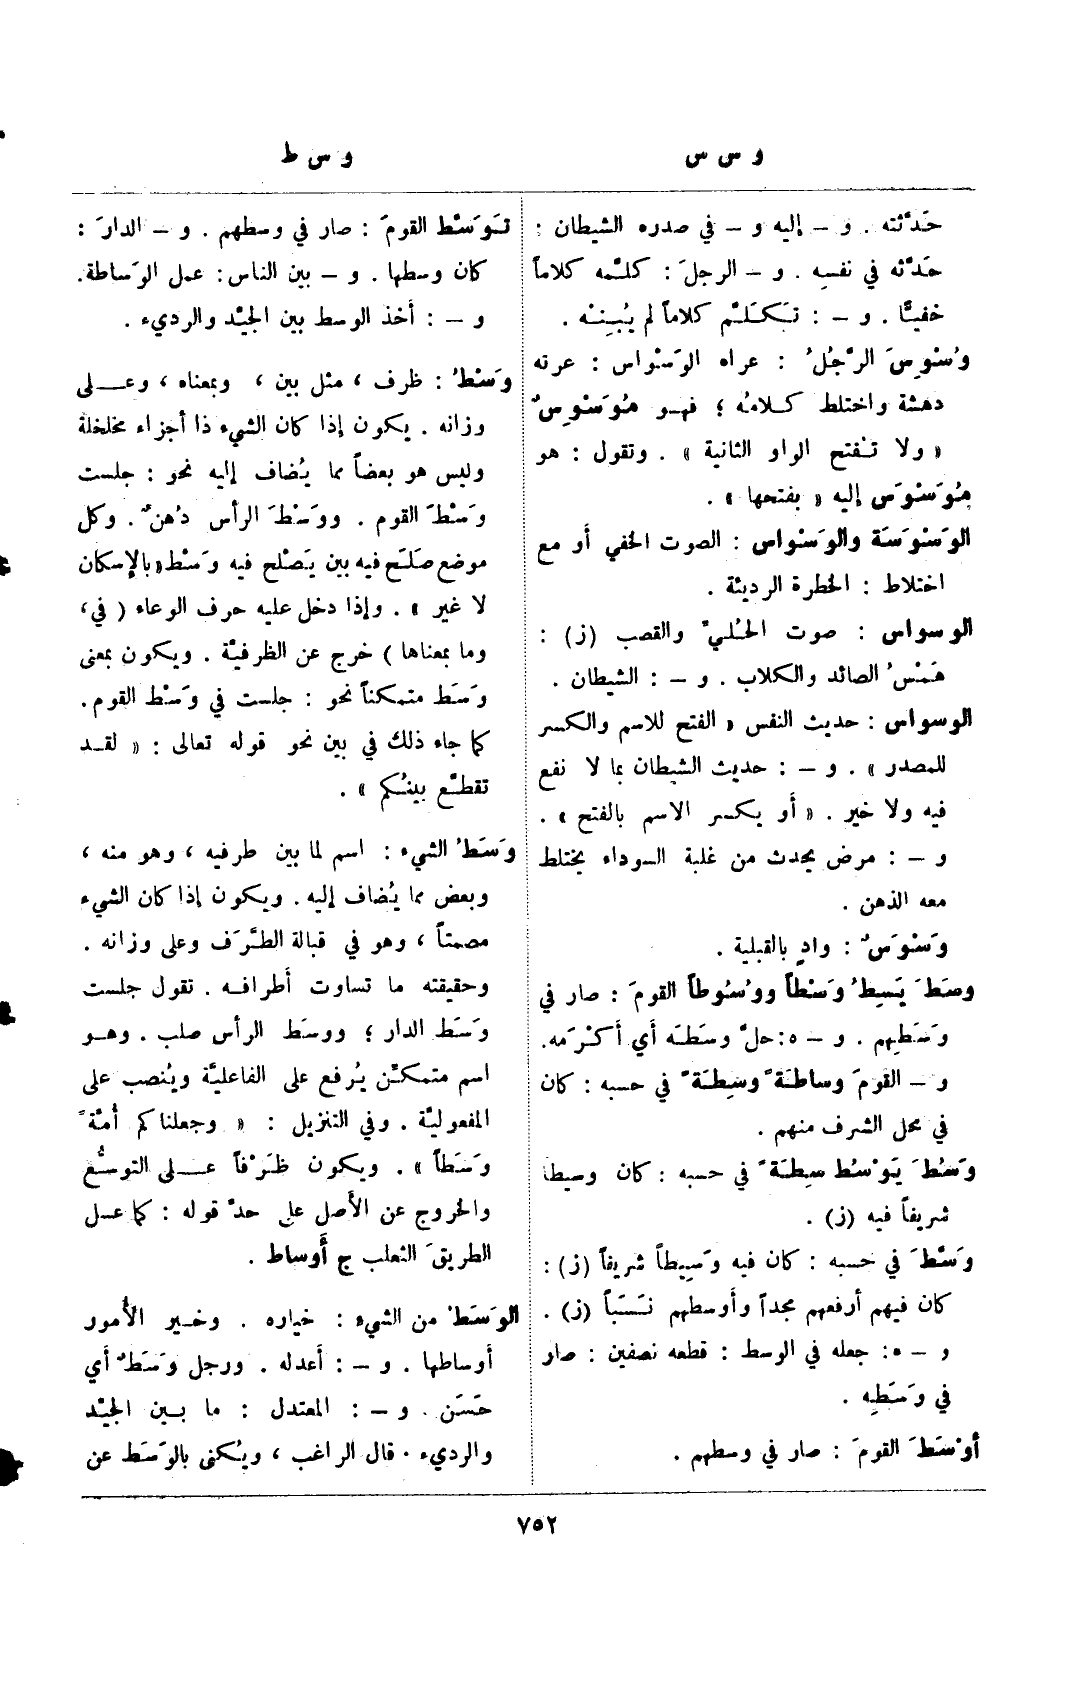 و س س
و س ط
حَدَّثته . و – إليه و – في صدره الشيطان :
حَدَّثه في نفسِه . و – الرجلَ : كلَّمه كلاماً
خفيًّا . و – : تَكَلَّم كلاماً لم يُبِنْه .
وُسْوِسَ الرَّجُلُ : عراه الوَسْواس : عرته
دهشة واختلط كلامُه ؛ فهو مُوَسْوِسٌ
« ولا تفْتح الواو الثانية » . وتقول : هو
مُوَسْوَس إليه « بفتحها » .
الوَسْوَسَة والوَسْواس : الصوت الخفي أو مع
اختلاط : الخطرة الرديئة .
الوسواس : صوت الحُليّ والقصب (ز) :
هَمْسُ الصائد والكلاب . و – : الشيطان .
الوسواس : حديث النفس « الفتح للاسم والكسر
للمصدر » . و – : حديث الشيطان بما لا نفع
فيه ولا خير . « أو يكسر الاسم بالفتح » .
و – : مرض يحدث من غلبة السوداء يختلط
معه الذهن .
وَسْوَسٌ : وادٍ بالقبلية .
وسَطَ يَسِطُ وَسْطاً ووُسُوطاً القومَ : صار في
وَسَطِهم . و – ه : حلَّ وسَطَه أي أكْرَمه .
و – القومَ وساطَةً وسِطَةً في حسبه : كان
في محل الشرف منهم .
وَسُطَ يَوْسُط سِطَةً في حسبه : كان وسيطا
شريفاً فيه (ز) .
وَسَّطَ في حسبه : كان فيه وَسِيطاً شريفاً (ز) :
كان فيهم أرفعهم مجداً وأوسطهم نَسَباً (ز) .
و – ه : جعله في الوسط : قطعه نصفين : صار
في وَسَطِه .
أوْسَطَ القومَ : صار في وسطهم .
تَوَسَّط القومَ : صار في وسطهم . و – الدارَ :
كان وسطها . و – بين الناس : عمل الوَساطة .
و – : أخذ الوسط بين الجيّد والرديء .
وَسْطُ : ظرف ، مثل بين ، وبمعناه ، وعلى
وزانه . يكون إذا كان الشيء ذا أجزاء مخلخلة
وليس هو بعضاً مما يُضاف إليه نحو : جلست
وَسْطَ القوم . ووَسْطَ الرأس دُهنٌ . وكل
موضع صلَح فيه بين يَصْلح فيه وَسْط « بالإسكان
لا غير » . وإذا دخل عليه حرف الوعاء ( في ،
وما بمعناها ) خرج عن الظرفيَّة . ويكون بمعنى
وَسَط متمكناً نحو : جلست في وَسْط القوم .
كما جاء ذلك في بين نحو قوله تعالى : « لقد
تقطَّع بينُكم » .
وَسَطُ الشيء : اسم لما بين طرفيه ، وهو منه ،
وبعض مما يُضاف إليه . ويكون إذا كان الشيء
مصمتاً ، وهو في قبالة الطَّرَف وعلى وزانه .
وحقيقته ما تساوت أطرافه . تقول جلست
وَسَط الدار ؛ ووسَط الرأس صلب . وهو
اسم متمكّن يُرفع على الفاعليَّة ويُنصب على
المفعوليَّة . وفي التنزيل : « وجعلناكم أمَّةً
وَسَطاً » . ويكون ظَرْفاً على التوسُّع
والخروج عن الأصل على حدّ قوله : كما عسل
الطريقَ الثعلب ج أَوساط .
الوَسَطُ من الشيء : خياره . وخير الأُمور
أوساطها . و – : أعدله . ورجل وَسَطٌ أي
حَسَن . و – : المعتدل : ما بين الجيّد
والرديء . قال الراغب ، ويُكنى بالوَسَط عن
٧٥٢